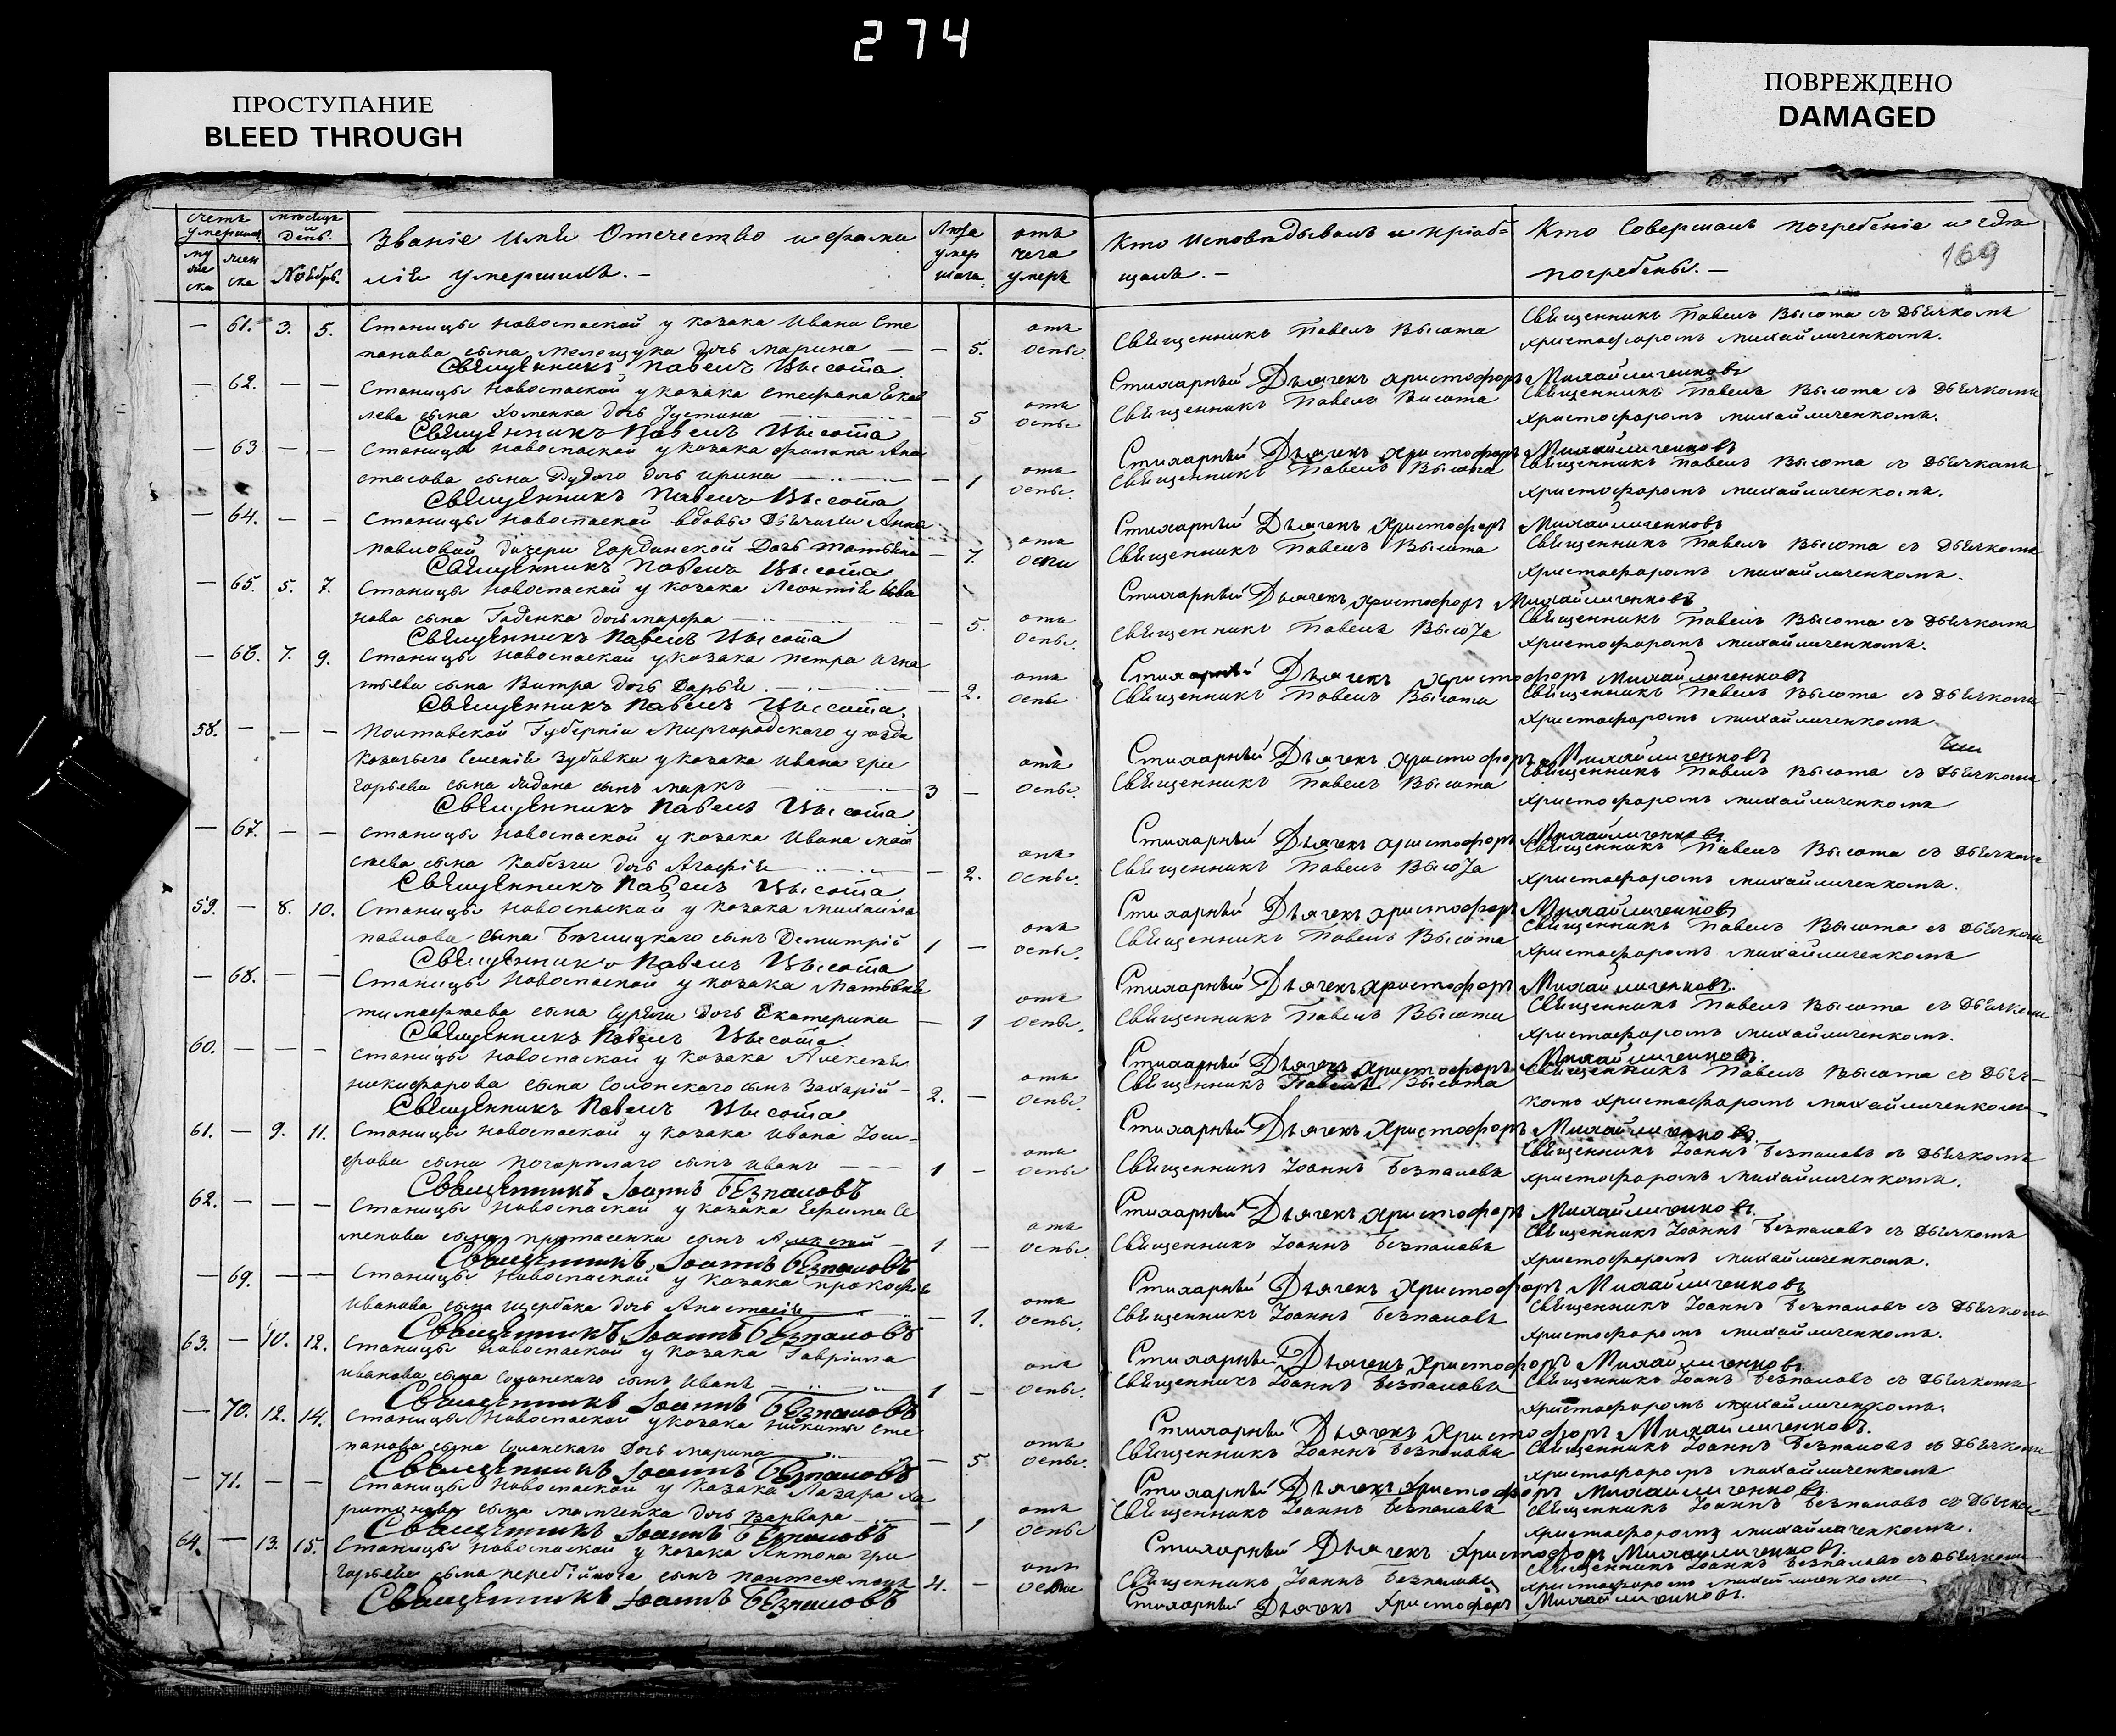 274
ПРОСТУПАНИЕ
BLEED THROUGH
ПОВРЕЖДЕНО
DAMAGED
169
Счетъ умершихъ
муже ска
жен ска
Мѣсяцъ и день.
Ноябрь.
Званіе Имя Отечество и фами
лія умершихъ. —
Лѣта умер шаго.
отъ чего умеръ
Кто Исповѣдывалъ и пріоб-
щалъ. —
Кто Совершалъ погребеніе и гдѣ
погребены. —
— 61. 3. 5. Станицы Новоспаской у козака Ивана Сте
панова сына Мелещука дочь Марина — — 5. отъ оспы.
Священникъ Павелъ Высота
Священникъ Павелъ Высота
Священникъ Павелъ Высота съ Дьячкомъ
Христофоромъ Михайличенкомъ.
Стихарный Дьячекъ Христофоръ Михайличенковъ
— 62. — — Станицы Новоспаской у козака Стефана Яков
лева сына Хоменка дочь Іустина — 5 отъ оспы.
Священникъ Павелъ Высота
Священникъ Павелъ Высота
Священникъ Павелъ Высота съ Дьячкомъ
Христофоромъ Михайличенкомъ.
Стихарный Дьячекъ Христофоръ Михайличенковъ
— 63 — — Станицы Новоспаской у козака Филипа Ана
стасова сына Дудаго дочь Ирина — 1 отъ оспы.
Священникъ Павелъ Высота
Священникъ Павелъ Высота
Священникъ Павелъ Высота съ Дьячкомъ
Христофоромъ Михайличенкомъ.
Стихарный Дьячекъ Христофоръ Михайличенковъ
— 64. — — Станицы Новоспаской вдовы Дьячихи Анны
Павловой дочери Гординской Дочь Татьяна — 7. отъ оспы
Священникъ Павелъ Высота
Священникъ Павелъ Высота
Священникъ Павелъ Высота съ Дьячкомъ
Христофоромъ Михайличенкомъ.
Стихарный Дьячекъ Христофоръ Михайличенковъ
— 65. 5. 7. Станицы Новоспаской у козака Леонтія Ива
нова сына Гаденка дочь Марфа — 5. отъ оспы.
Священникъ Павелъ Высота
Священникъ Павелъ Высота
Священникъ Павелъ Высота съ Дьячкомъ
Христофоромъ Михайличенкомъ.
Стихарный Дьячекъ Христофоръ Михайличенковъ
— 66. 7. 9. Станицы Новоспаской у козака Петра Игна
тьева сына Витра дочь Дарья — 2. отъ оспы
Священникъ Павелъ Высота.
Священникъ Павелъ Высота
Священникъ Павелъ Высота съ Дьячкомъ
Христофоромъ Михайличенкомъ
Стихарный Дьячекъ Христофоръ Михайличенковъ
58. — — — Полтавской Губерніи Миргородскаго уѣзда
Козачьего Селенія Зубовки у козака Ивана Гри
горьева сына сынъ Марко 3 — отъ оспы.
Священникъ Павелъ Высота
Священникъ Павелъ Высота
Священникъ Павелъ Высота съ Дьячкомъ
Христофоромъ Михайличенкомъ
Стихарный Дьячекъ Христофоръ Михайличенковъ
— 67. — — Станицы Новоспаской у козака Ивана Мои
сеева сына Кобезги дочь Агафія — 2. отъ оспы.
Священникъ Павелъ Высота
Священникъ Павелъ Высота
Священникъ Павелъ Высота съ Дьячкомъ
Христофоромъ Михайличенкомъ.
Стихарный Дьячекъ Христофоръ Михайличенковъ
59. — 8. 10. Станицы Новоспаской у козака Михаила
Павлова сына сынъ Димитрій 1 — отъ оспы.
Священникъ Павелъ Высота
Священникъ Павелъ Высота
Священникъ Павелъ Высота съ Дьячкомъ
Христофоромъ Михайличенкомъ
Стихарный Дьячекъ Христофоръ Михайличенковъ.
— 68. — — Станицы Новоспаской у козака Матвѣя
Тимофѣева сына дочь Екатерина — 1 отъ оспы.
Священникъ Павелъ Высота.
Священникъ Павелъ Высота
Священникъ Павелъ Высота съ Дьячкомъ
Христофоромъ Михайличенкомъ.
Стихарный Дьячекъ Христофоръ Михайличенковъ.
60. — — — Станицы Новоспаской у козака Алексѣя
Никифорова сына Солонскаго сынъ Захарій — 2. — отъ оспы.
Священникъ Павелъ Высота.
Священникъ Павелъ Высота
Священникъ Павелъ Высота съ Дьяч-
комъ Христофоромъ Михайличенкомъ
Стихарный Дьячекъ Христофоръ Михайличенковъ.
61. — 9. 11. Станицы Новоспаской у козака Ивана Іоси-
фова сына Погорѣлаго сынъ Иванъ — 1 — отъ оспы
Священникъ Іоаннъ Безпаловъ
Священникъ Іоаннъ Безпаловъ
Священникъ Іоаннъ Безпаловъ съ Дьячкомъ
Христофоромъ Михайличенкомъ.
Стихарный Дьячекъ Христофоръ Михайличенковъ.
62. — — — Станицы Новоспаской у козака Ефима Се
менова сына Протасенка сынъ Алексѣй 1 — отъ оспы.
Священникъ Іоаннъ Безпаловъ
Священникъ Іоаннъ Безпаловъ
Священникъ Іоаннъ Безпаловъ съ Дьячкомъ
Христофоромъ Михайличенкомъ.
Стихарный Дьячекъ Христофоръ Михайличенковъ
— 69. — — Станицы Новоспаской у козака Прокофія
Иванова сына Щербака дочь Анастасія — 1. отъ оспы.
Священникъ Іоаннъ Безпаловъ
Священникъ Іоаннъ Безпаловъ
Священникъ Іоаннъ Безпаловъ съ Дьячкомъ
Христофоромъ Михайличенкомъ.
Стихарный Дьячекъ Христофоръ Михайличенковъ.
63. — 10. 12. Станицы Новоспаской у козака Гавріила
Иванова сына Солонскаго сынъ Иванъ 1 — отъ оспы.
Священникъ Іоаннъ Безпаловъ
Священникъ Іоаннъ Безпаловъ
Священникъ Іоаннъ Безпаловъ съ Дьячкомъ
Христофоромъ Михайличенкомъ.
Стихарный Дьячекъ Христофоръ Михайличенковъ.
— 70. 12. 14. Станицы Новоспаской у козака Никиты Сте
панова сына Солонскаго Дочь Марина — 5 отъ оспы.
Священникъ Іоаннъ Безпаловъ
Священникъ Іоаннъ Безпаловъ
Священникъ Іоаннъ Безпаловъ съ Дьячкомъ
Христофоромъ Михайличенкомъ
Стихарный Дьячекъ Христофоръ Михайличенковъ.
— 71. — — Станицы Новоспаской у козака Лазаря Ха
ритонова сына дочь Варвара — 1 отъ оспы
Священникъ Іоаннъ Безпаловъ
Священникъ Іоаннъ Безпаловъ
Священникъ Іоаннъ Безпаловъ съ Дьячкомъ
Христофоромъ Михайличенкомъ.
Стихарный Дьячекъ Христофоръ Михайличенковъ.
64. — 13. 15. Станицы Новоспаской у козака Антона Гри
горьева сына Перебійноса сынъ Пантелемонъ 4. — отъ оспы
Священникъ Іоаннъ Безпаловъ
Священникъ Іоаннъ Безпаловъ
Священникъ Іоаннъ Безпаловъ съ Дьячкомъ
Христофоромъ Михайличенкомъ
Стихарный Дьячекъ Христофоръ Михайличенковъ.